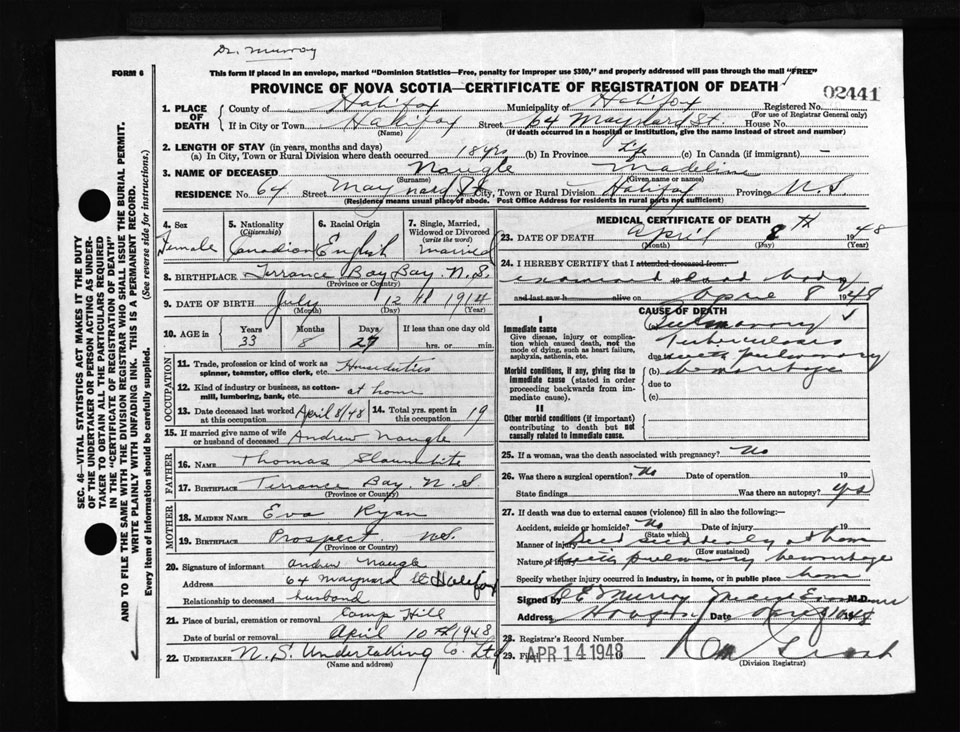 Dr. Murray
FORM 6
This form if placed in an envelope, marked "Dominion Statistics—Free, penalty for improper use $300," and properly addressed will pass through the mail "FREE"
PROVINCE OF NOVA SCOTIA—CERTIFICATE OF REGISTRATION OF DEATH
02441
1. PLACE OF DEATH
County of Halifax Municipality of Halifax Registered No.
(For use of Registrar General only)
If in City or Town Halifax Street 64 Maynard St. House No.
(Name) (If death occurred in a hospital or institution, give the name instead of street and number)
2. LENGTH OF STAY (in years, months and days)
(a) In City, Town or Rural Division where death occurred 18 yrs (b) In Province Life (c) In Canada (if immigrant) —
3. NAME OF DECEASED Naugle Madeline
(Surname) (Given name or names)
RESIDENCE No. 64 Street Maynard St City, Town or Rural Division Halifax Province N.S.
(Residence means usual place of abode. Post Office Address for residents in rural parts not sufficient)
4. Sex
Female
5. Nationality (Citizenship)
Canadian
6. Racial Origin
English
7. Single, Married, Widowed or Divorced (write the word)
Married
8. BIRTHPLACE Terrance Bay Bay. N.S.
(Province or Country)
9. DATE OF BIRTH July 12th 1914
(Month) (Day) (Year)
10. AGE in
Years Months Days If less than one day old
33 8 27 hrs. or min.
OCCUPATION
11. Trade, profession or kind of work as spinner, teamster, office clerk, etc. House duties
12. Kind of industry or business, as cotton-mill, lumbering, bank, etc. at home
13. Date deceased last worked at this occupation April 8/48
14. Total yrs. spent in this occupation 19
15. If married give name of wife or husband of deceased Andrew Naugle
FATHER
16. NAME Thomas Slaunwhite
17. BIRTHPLACE Terrance Bay. N.S
(Province or Country)
MOTHER
18. MAIDEN NAME Eva Ryan
19. BIRTHPLACE Prospect. N.S.
(Province or Country)
20. Signature of informant Andrew Naugle
Address 64 Maynard St Halifax
Relationship to deceased husband
21. Place of burial, cremation or removal Camp Hill
Date of burial or removal April 10th 1948
22. UNDERTAKER N.S. Undertaking Co. Ltd
(Name and address)
MEDICAL CERTIFICATE OF DEATH
23. DATE OF DEATH April 8th 1948
(Month) (Day) (Year)
24. I HEREBY CERTIFY that I attended deceased from:
examined dead body
and last saw h alive on April 8 1948
CAUSE OF DEATH
I
Immediate cause
Give disease, injury or complication which caused death, not the mode of dying, such as heart failure, asphyxia, asthenia, etc.
Pulmonary
Tuberculosis
due with pulmonary
(b) hemorrhage
Morbid conditions, if any, giving rise to immediate cause (stated in order proceeding backwards from immediate cause).
due to
(c)
II
Other morbid conditions (if important) contributing to death but not causally related to immediate cause.
25. If a woman, was the death associated with pregnancy? No
26. Was there a surgical operation? No Date of operation 19
State findings Was there an autopsy? yes
27. If death was due to external causes (violence) fill in also the following:
Accident, suicide or homicide? No Date of injury 19
(State which)
Manner of injury Died suddenly at home
(How sustained)
Nature of injury with pulmonary hemorrhage
Specify whether injury occurred in industry, in home, or in public place home
Signed by Murray M.D.
Address Date 1948
28. Registrar's Record Number
29. Filed APR 14 1948
(Division Registrar)
SEC. 46—VITAL STATISTICS ACT MAKES IT THE DUTY OF THE UNDERTAKER OR PERSON ACTING AS UNDERTAKER TO OBTAIN ALL THE PARTICULARS REQUIRED IN THE "CERTIFICATE OF REGISTRATION OF DEATH" AND TO FILE THE SAME WITH THE DIVISION REGISTRAR WHO SHALL ISSUE THE BURIAL PERMIT.
WRITE PLAINLY WITH UNFADING INK. THIS IS A PERMANENT RECORD.
Every item of information should be carefully supplied. (See reverse side for instructions.)